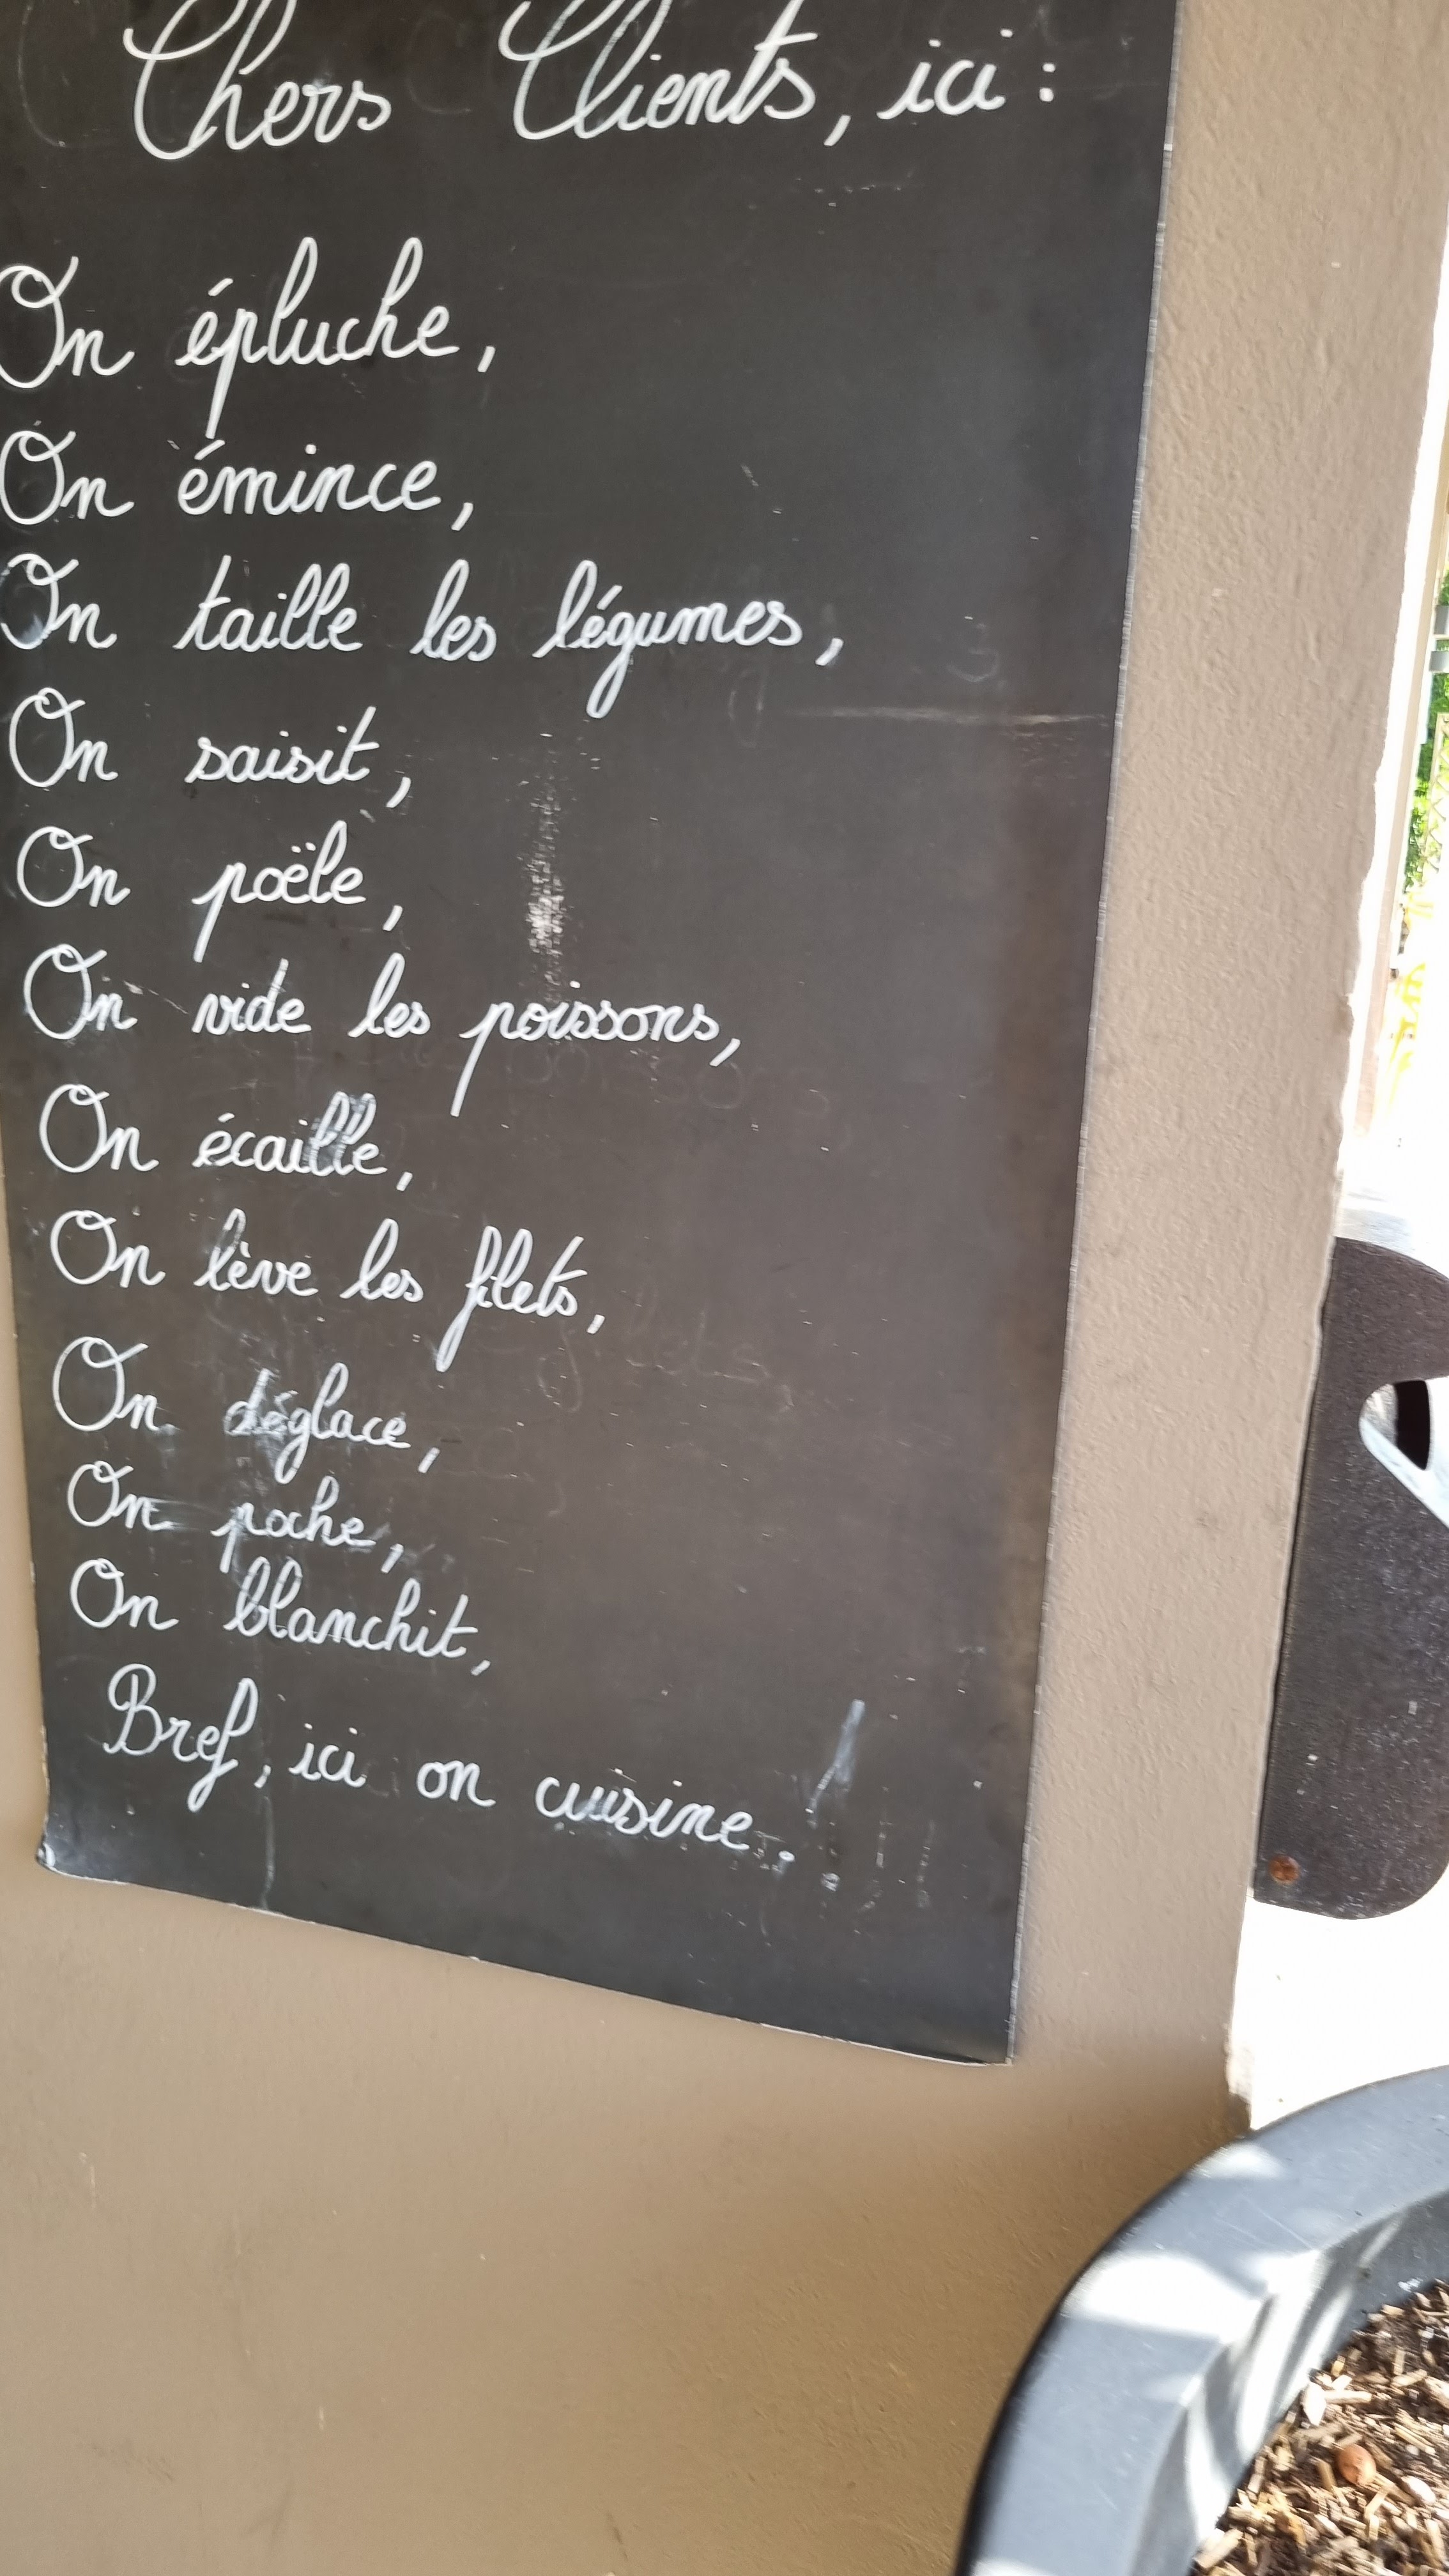 Chers Clients, ici :
On épluche,
On émince,
On taille les légumes,
On saisit,
On poële,
On vide les poissons,
On écaille,
On lève les filets,
On déglace,
On poche,
On blanchit,
Bref, ici on cuisine..!